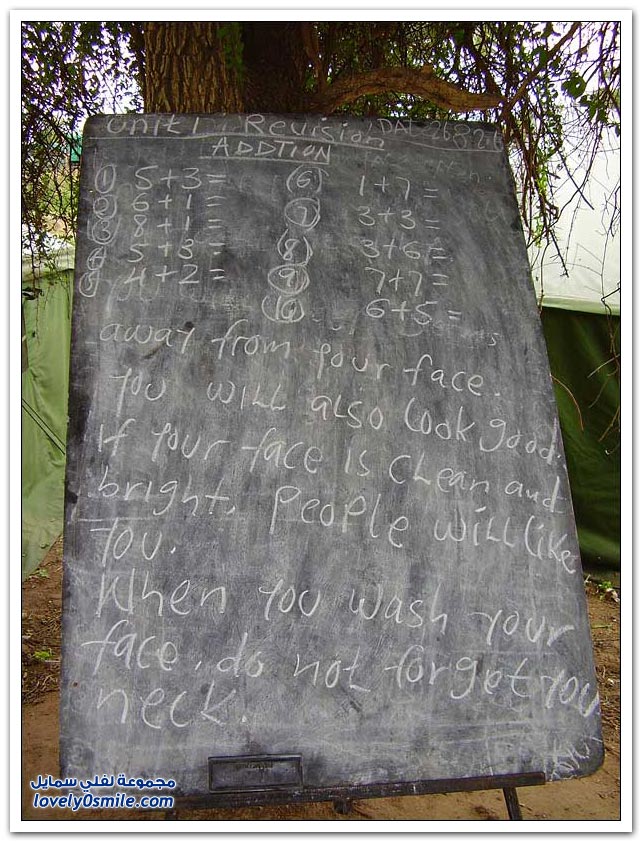 Unit 1 Revision
ADDTION
① 5+3=
② 6+1=
③ 8+1=
④ 5+3=
⑤ 4+2=
⑥ 1+7=
⑦ 3+3=
⑧ 3+6=
⑨ 7+7=
⑩ 6+5=
away from your face.
you will also look good.
If your face is clean and
bright, people will like
you.
When you wash your
face, do not forget you
neck.
مجموعة لفلي سمايل
lovely0smile.com